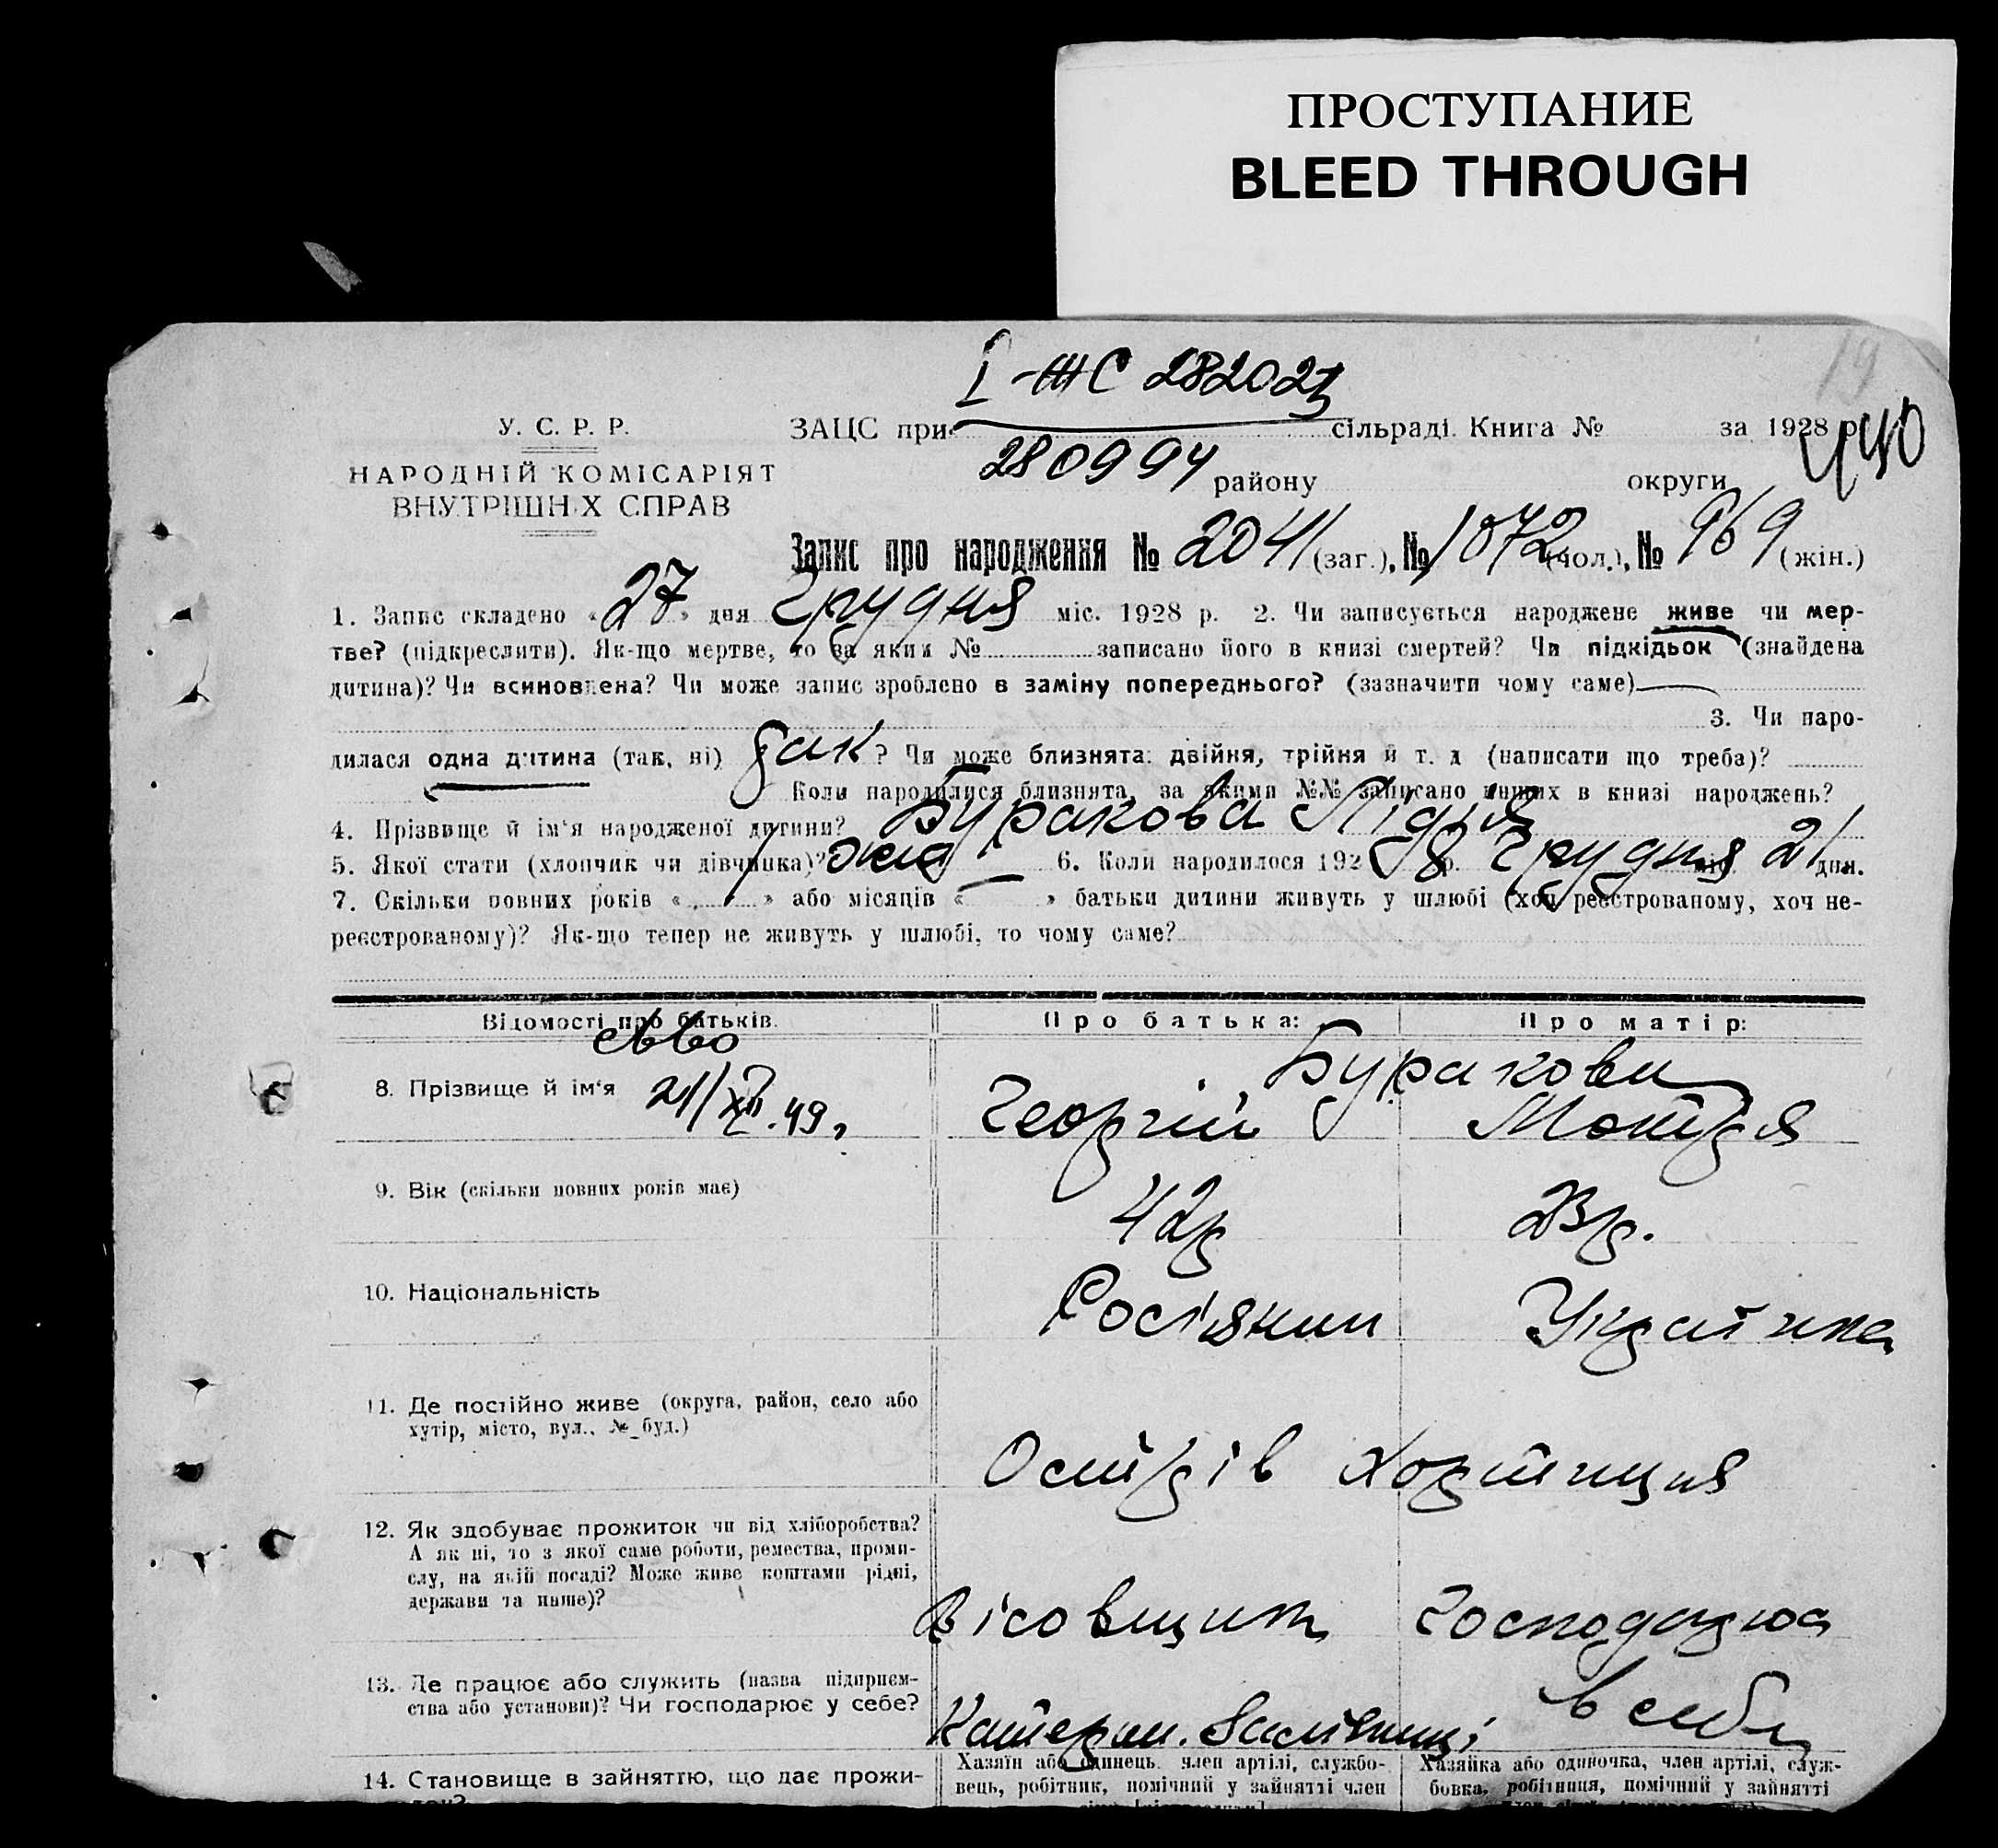 ПРОСТУПАНИЕ
BLEED THROUGH
19
I-ЖС 282023
У. С. Р. Р.
ЗАЦС при сільраді. Книга № за 1928 р.
280994
НАРОДНІЙ КОМІСАРІЯТ
ВНУТРІШНІХ СПРАВ
району округи
Запис про народження № 2041 (заг.), № 1072 (чол.), № 969 (жін.)
1. Запис складено «27» дня Грудня міс. 1928 р. 2. Чи записується народжене живе чи мер-
тве? (підкреслити). Як-що мертве, то за яким № записано його в книзі смертей? Чи підкідьок (знайдена
дитина)? Чи всиновлена? Чи може запис зроблено в заміну попереднього? (зазначити чому саме)
3. Чи наро-
дилася одна дитина (так, ні) так? Чи може близнята: двійня, трійня й т. д (написати що треба)?
Коли народилися близнята, за якими №№ записано инших в книзі народжень?
4. Прізвище й ім'я народженої дитини? Буракова Лідія
5. Якої стати (хлопчик чи дівчинка)? 6. Коли народилося 1928 р. Грудня міс. 21 дня.
7. Скільки повних років « » або місяців « » батьки дитини живуть у шлюбі (хоч реєстрованому, хоч не-
реєстрованому)? Як-що тепер не живуть у шлюбі, то чому саме?
Відомості про батьків. Про батька: Про матір:
св-во
Буракови
8. Прізвище й ім'я 21/XII.49 Георгій Мотря
9. Вік (скільки повних років має) 42р 23р.
10. Національність Росіянин Українка
11. Де постійно живе (округа, район, село або
хутір, місто, вул., № буд.)
Острів Хортиця
12. Як здобуває прожиток чи від хліборобства?
А як ні, то з якої саме роботи, ремества, проми-
слу, на якій посаді? Може живе коштами рідні,
держави та инше)?
Вісовщик Господарює
13. Де працює або служить (назва підприєм-
ства або установи)? Чи господарює у себе?
в себе
Катерин. Залізниці
14. Становище в зайняттю, що дає прожи-
ток?
Хазяїн або одинець, член артілі, службо-
вець, робітник, помічний у зайнятті член
Хазяйка або одиночка, член артілі, служ-
бовка, робітниця, помічний у зайнятті